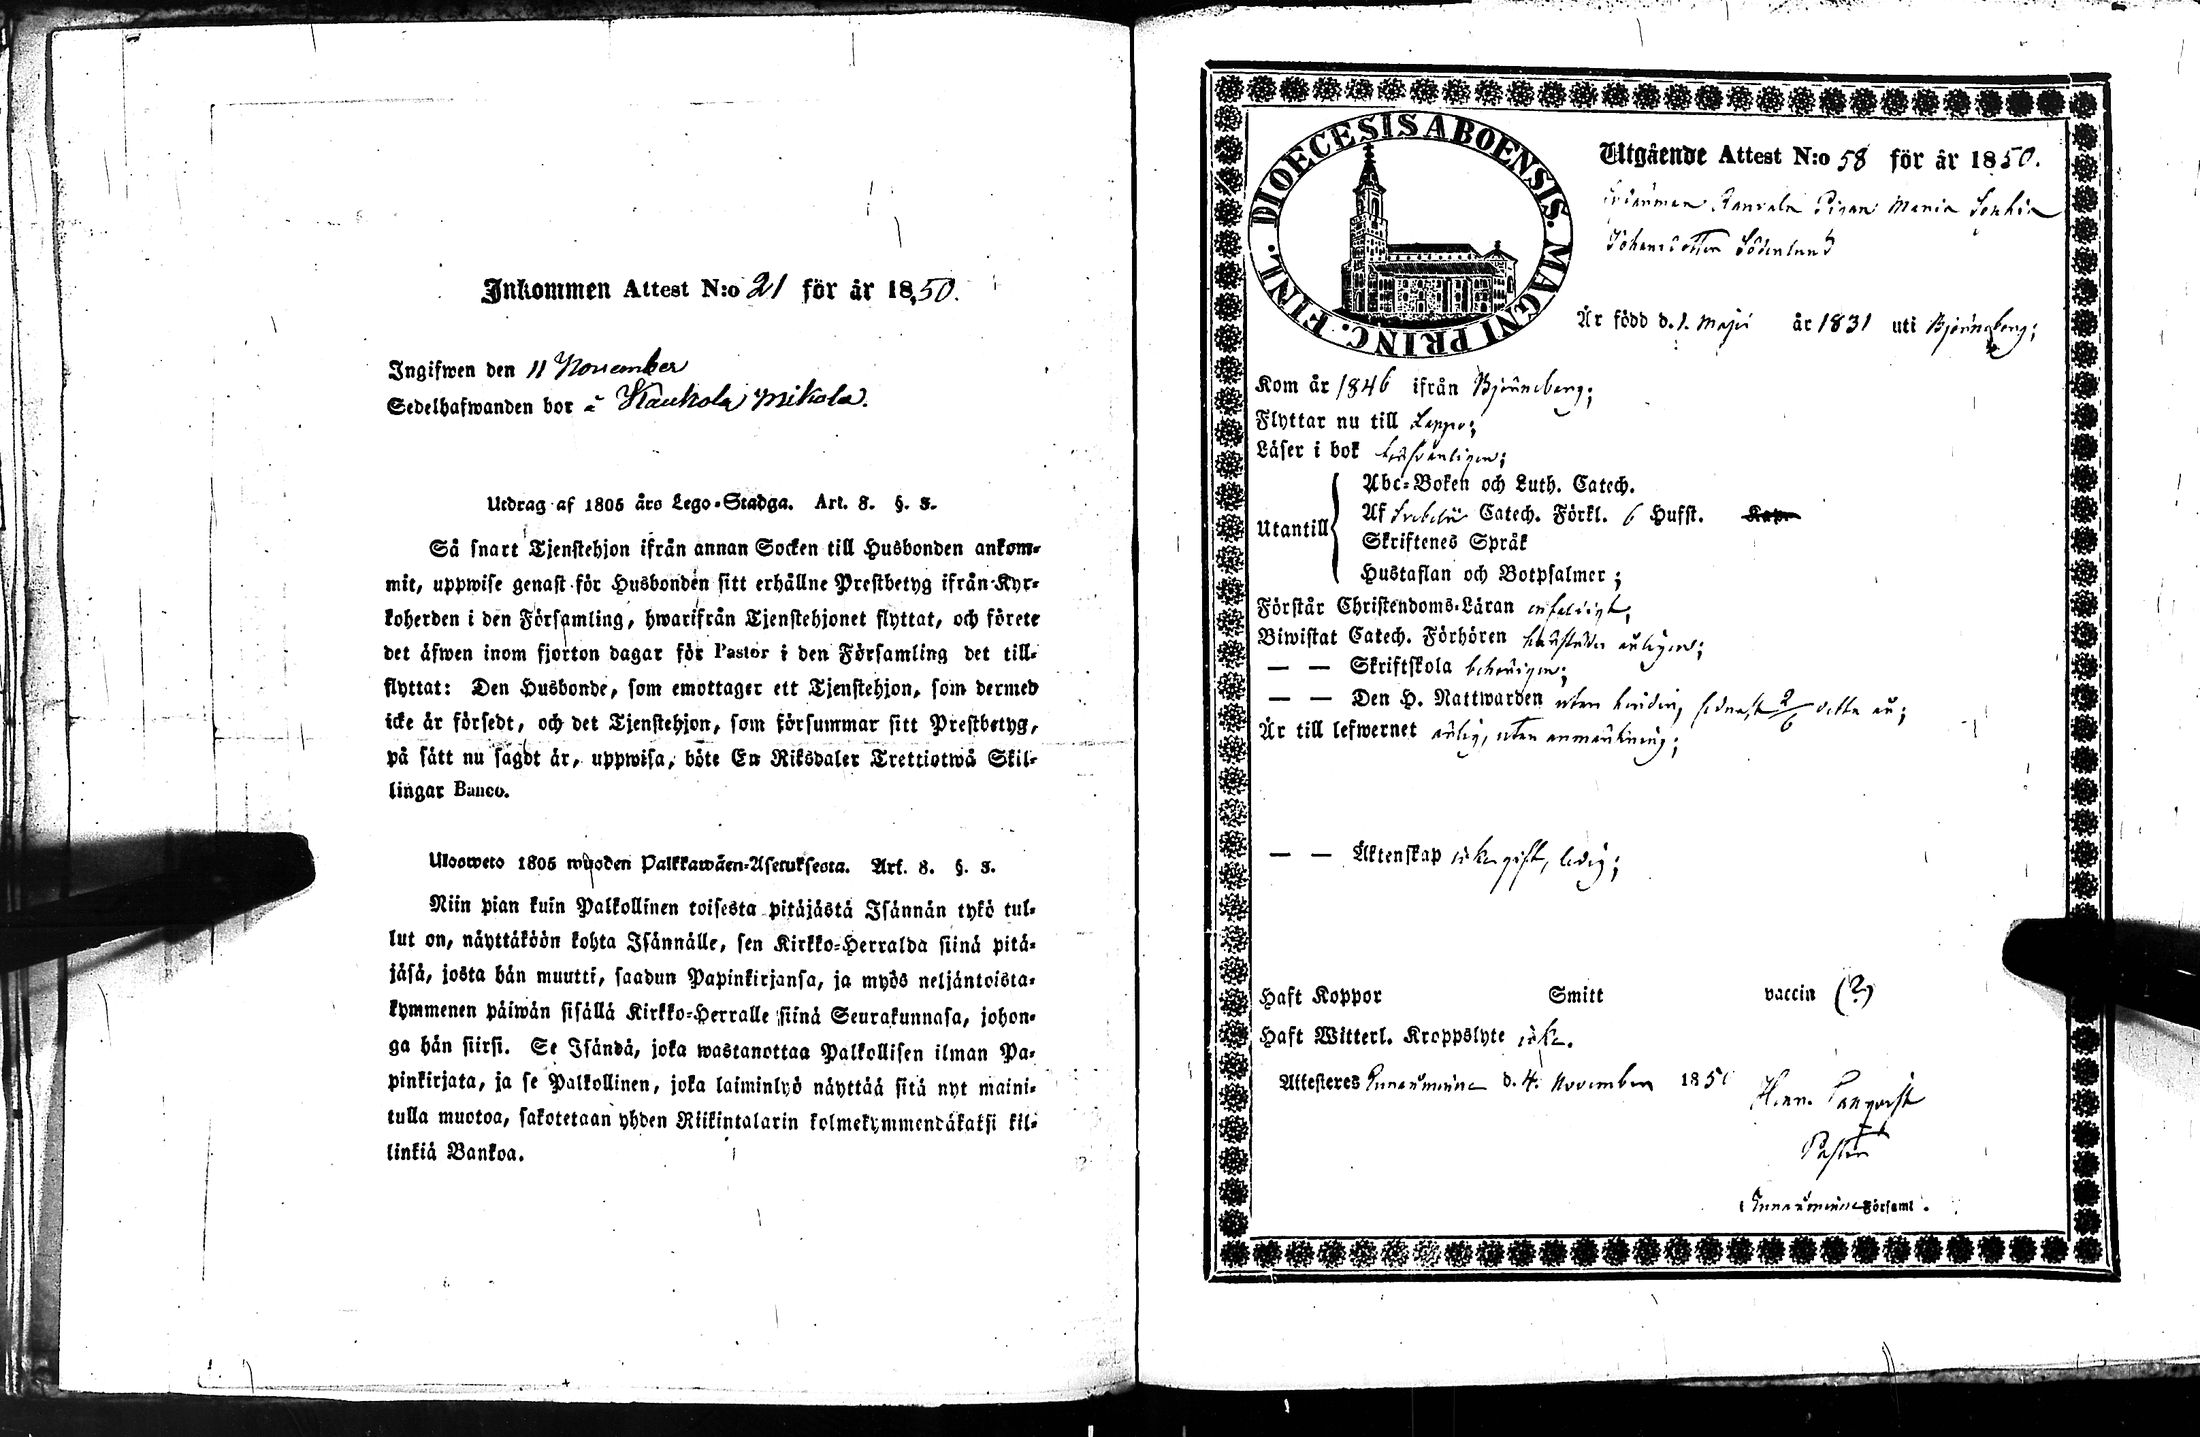 Inkommen Attest N:o 21 för år 1850.
Ingifwen den 11 November
Sedelhafwanden bor å Kaukola Mikola.
Utdrag af 1805 års Lego-Stadga. Art. 8. §. 3.
Så snart Tjenstehjon ifrån annan Socken till Husbonden ankom-
mit, uppwise genast för Husbonden sitt erhållne Prestbetyg ifrån Kyr-
koherden i den Församling, hwarifrån Tjenstehjonet flyttat, och förete
det äfwen inom fjorton dagar för Pastor i den Församling det till-
flyttat: Den Husbonde, som emottager ett Tjenstehjon, som dermed
icke är försedt, och det Tjenstehjon, som försummar sitt Prestbetyg,
på sätt nu sagdt är, uppwisa, böte En Riksdaler Trettiotwå Skil-
lingar Banco.
Ulosweto 1805 wuoden Palkkawäen-Asetuksesta. Art. 8. §. 3.
Niin pian kuin Palkollinen toisesta pitäjästä Isännän tykö tul-
lut on, näyttäköön kohta Isännälle, sen Kirkko-Herralda siinä pitä-
jäsä, josta hän muutti, saadun Papinkirjansa, ja myös neljäntoista-
kymmenen päiwän sisällä Kirkko-Herralle siinä Seurakunnasa, johon-
ga hän siirsi. Se Isändä, joka wastanottaa Palkollisen ilman Pa-
pinkirjata, ja se Palkollinen, joka laiminlyö näyttää sitä nyt maini-
tulla muotoa, sakotetaan yhden Riikintalarin kolmekymmendäkaksi kil-
linkiä Bankoa.
DIOECESIS ABOENSIS. MAGNI PRINC. FINL.
Utgående Attest N:o 58 för år 1850.
Pigan Maria Sophia
Johansdotter Söderlund
Är född d. 1. Maji år 1831 uti Björneborg;
Kom år 1846 ifrån Björneborg;
Flyttar nu till Lappo;
Läser i bok försvarligen;
Utantill
Abc-Boken och Luth. Catech.
Af Svebelii Catech. Förkl. 6 Hufst. Kap.
Skriftenes Språk
Hustaflan och Botpsalmer;
Förstår Christendoms-Läran enfaldigt;
Biwistat Catech. Förhören
— — Skriftskola behörigen;
— — Den H. Nattwarden utan hinder, sednast 2/6 detta år;
Är till lefwernet ärlig, utan anmärkning;
— — Äktenskap icke gift, ledig;
Haft Koppor Smitt vaccin (?)
Haft Witterl. Kroppslyte icke.
Attesteres Punamäne d. 4. November 1850
Pastor
Församl.